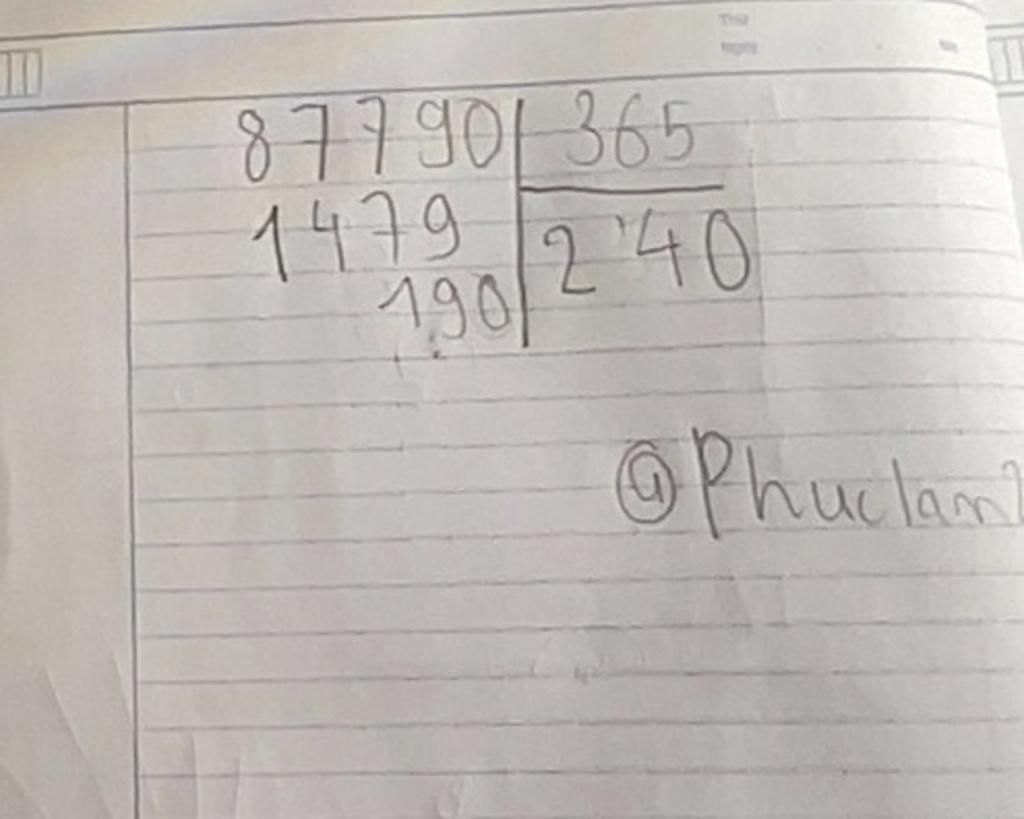 87790 365
1479 240
190
@Phuclam